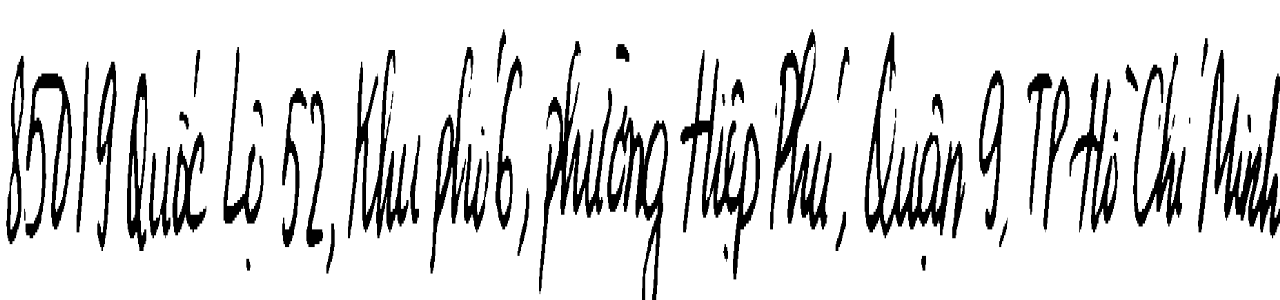 85019 Quốc Lộ 52, Khu phố 6, phường Hiệp Phú, Quận 9, TP Hồ Chí Minh